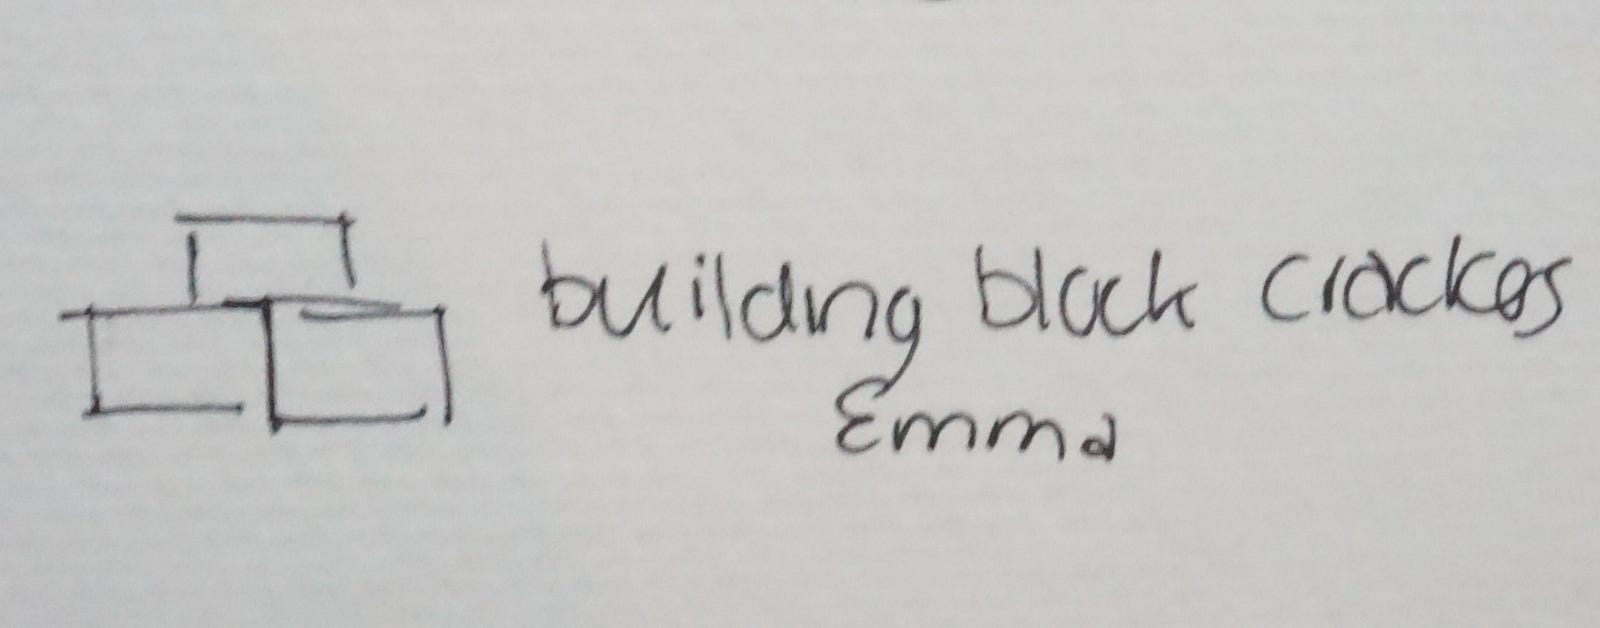 building block crackes
Emma